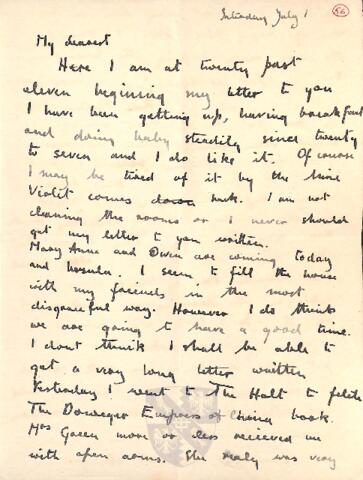 Saturday July 1
56
My dearest
Here I am at twenty past
eleven beginning my letter to you
I have been getting up, having breakfast
and doing baby steadily since twenty
to seven and I do like it. Of course
I may be tired of it by the time
Violet comes down back. I am not
cleaning the rooms or I never should
get my letter to you written.
Mary Anne and Owen are coming today
and Ursula. I seem to fill the house
with my friends in the most
disgraceful way. However I do think
we are going to have a good time.
I dont think I shall be able to
get a very long letter written
Yesterday I went to The Halt to fetch
The Dowager Empress of China book.
Mrs Green more or less recieved me
with open arms. She realy was very